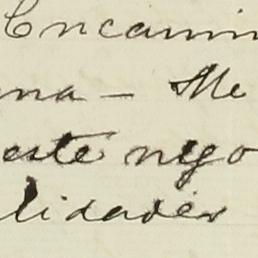 Encamin
na - Me
este nego
lidades